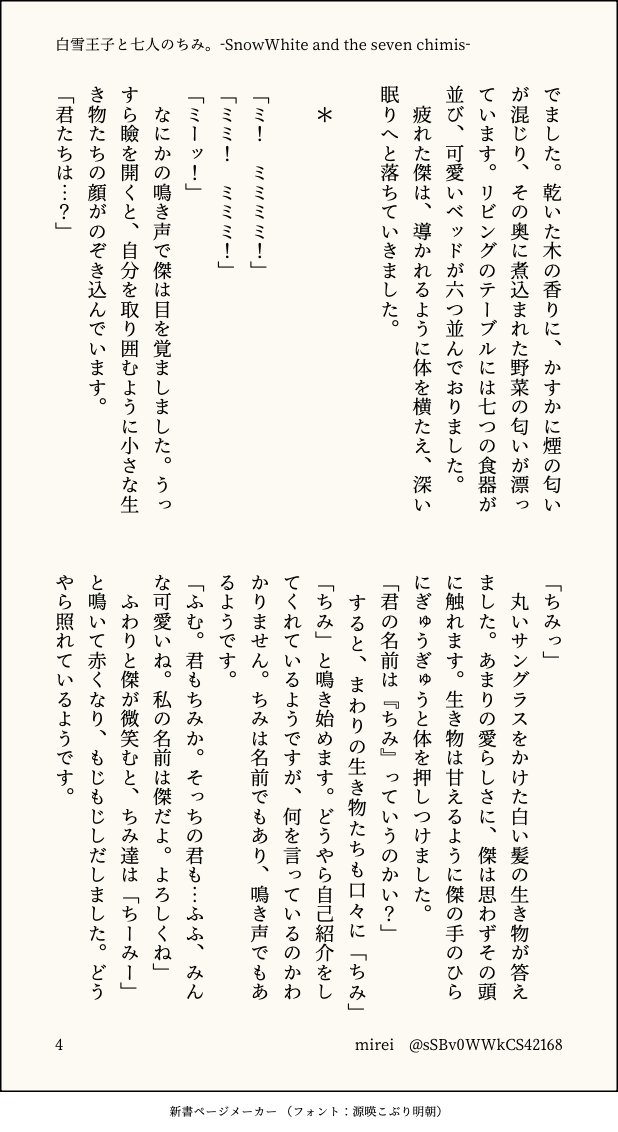 白雪王子と七人のちみ。-SnowWhite and the seven chimis-
でました。乾いた木の香りに、かすかに煙の匂い
が混じり、その奥に煮込まれた野菜の匂いが漂っ
ています。リビングのテーブルには七つの食器が
並び、可愛いベッドが六つ並んでおりました。
　疲れた傑は、導かれるように体を横たえ、深い
眠りへと落ちていきました。
＊
「ミ！　ミミミミ！」
「ミミ！　ミミミ！」
「ミーッ！」
　なにかの鳴き声で傑は目を覚ましました。うっ
すら瞼を開くと、自分を取り囲むように小さな生
き物たちの顔がのぞき込んでいます。
「君たちは…？」
「ちみっ」
　丸いサングラスをかけた白い髪の生き物が答え
ました。あまりの愛らしさに、傑は思わずその頭
に触れます。生き物は甘えるように傑の手のひら
にぎゅうぎゅうと体を押しつけました。
「君の名前は『ちみ』っていうのかい？」
　すると、まわりの生き物たちも口々に「ちみ」
「ちみ」と鳴き始めます。どうやら自己紹介をし
てくれているようですが、何を言っているのかわ
かりません。ちみは名前でもあり、鳴き声でもあ
るようです。
「ふむ。君もちみか。そっちの君も…ふふ、みん
な可愛いね。私の名前は傑だよ。よろしくね」
　ふわりと傑が微笑むと、ちみ達は「ちーみー」
と鳴いて赤くなり、もじもじしだしました。どう
やら照れているようです。
4
mirei　@sSBv0WWkCS42168
新書ページメーカー（フォント：源暎こぶり明朝）